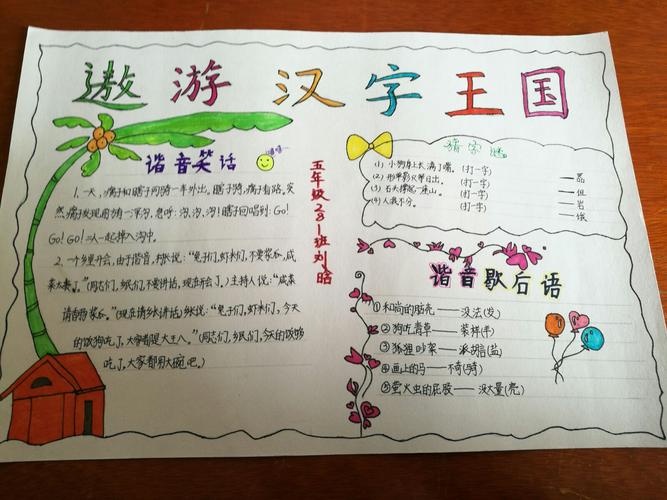 遨游汉字王国
谐音笑话
嘻嘻
1. 一天,瘸子和瞎子同骑一车外出。瞎子骑,瘸子看路。突
然,瘸子发现前有一深沟,急呼:沟,沟,沟!瞎子回唱到:Go!
Go! Go! 二人一起掉入沟中。
2. 一个乡里开会,由于谐音,村长说:“兔子们,虾米们,不要酱瓜,咸
菜太贵了。”(同志们,乡民们,不要讲话,现在开会了。)主持人说:“咸菜
请香肠酱瓜。”(现在请乡长讲话)乡长说:“兔子们,虾米们,今天
的饭狗吃了,大家都是大王八。”(同志们,乡民们,今天的饭够
吃了,大家都用大碗吧。)
五年级281班刘晗
猜字谜
(1) 小狗身上长满了嘴。(打一字) ——品
(2) 形单影只单日出。(打一字) ——但
(3) 石头撑起一座山。(打一字) ——岩
(4) 人我不分。(打一字) ——俄
谐音歇后语
①和尚的脑壳——没法(发)
②狗吃青草——装样(羊)
③狐狸吵菜——
④画上的马——不奇(骑)
⑤萤火虫的屁股——没大量(亮)